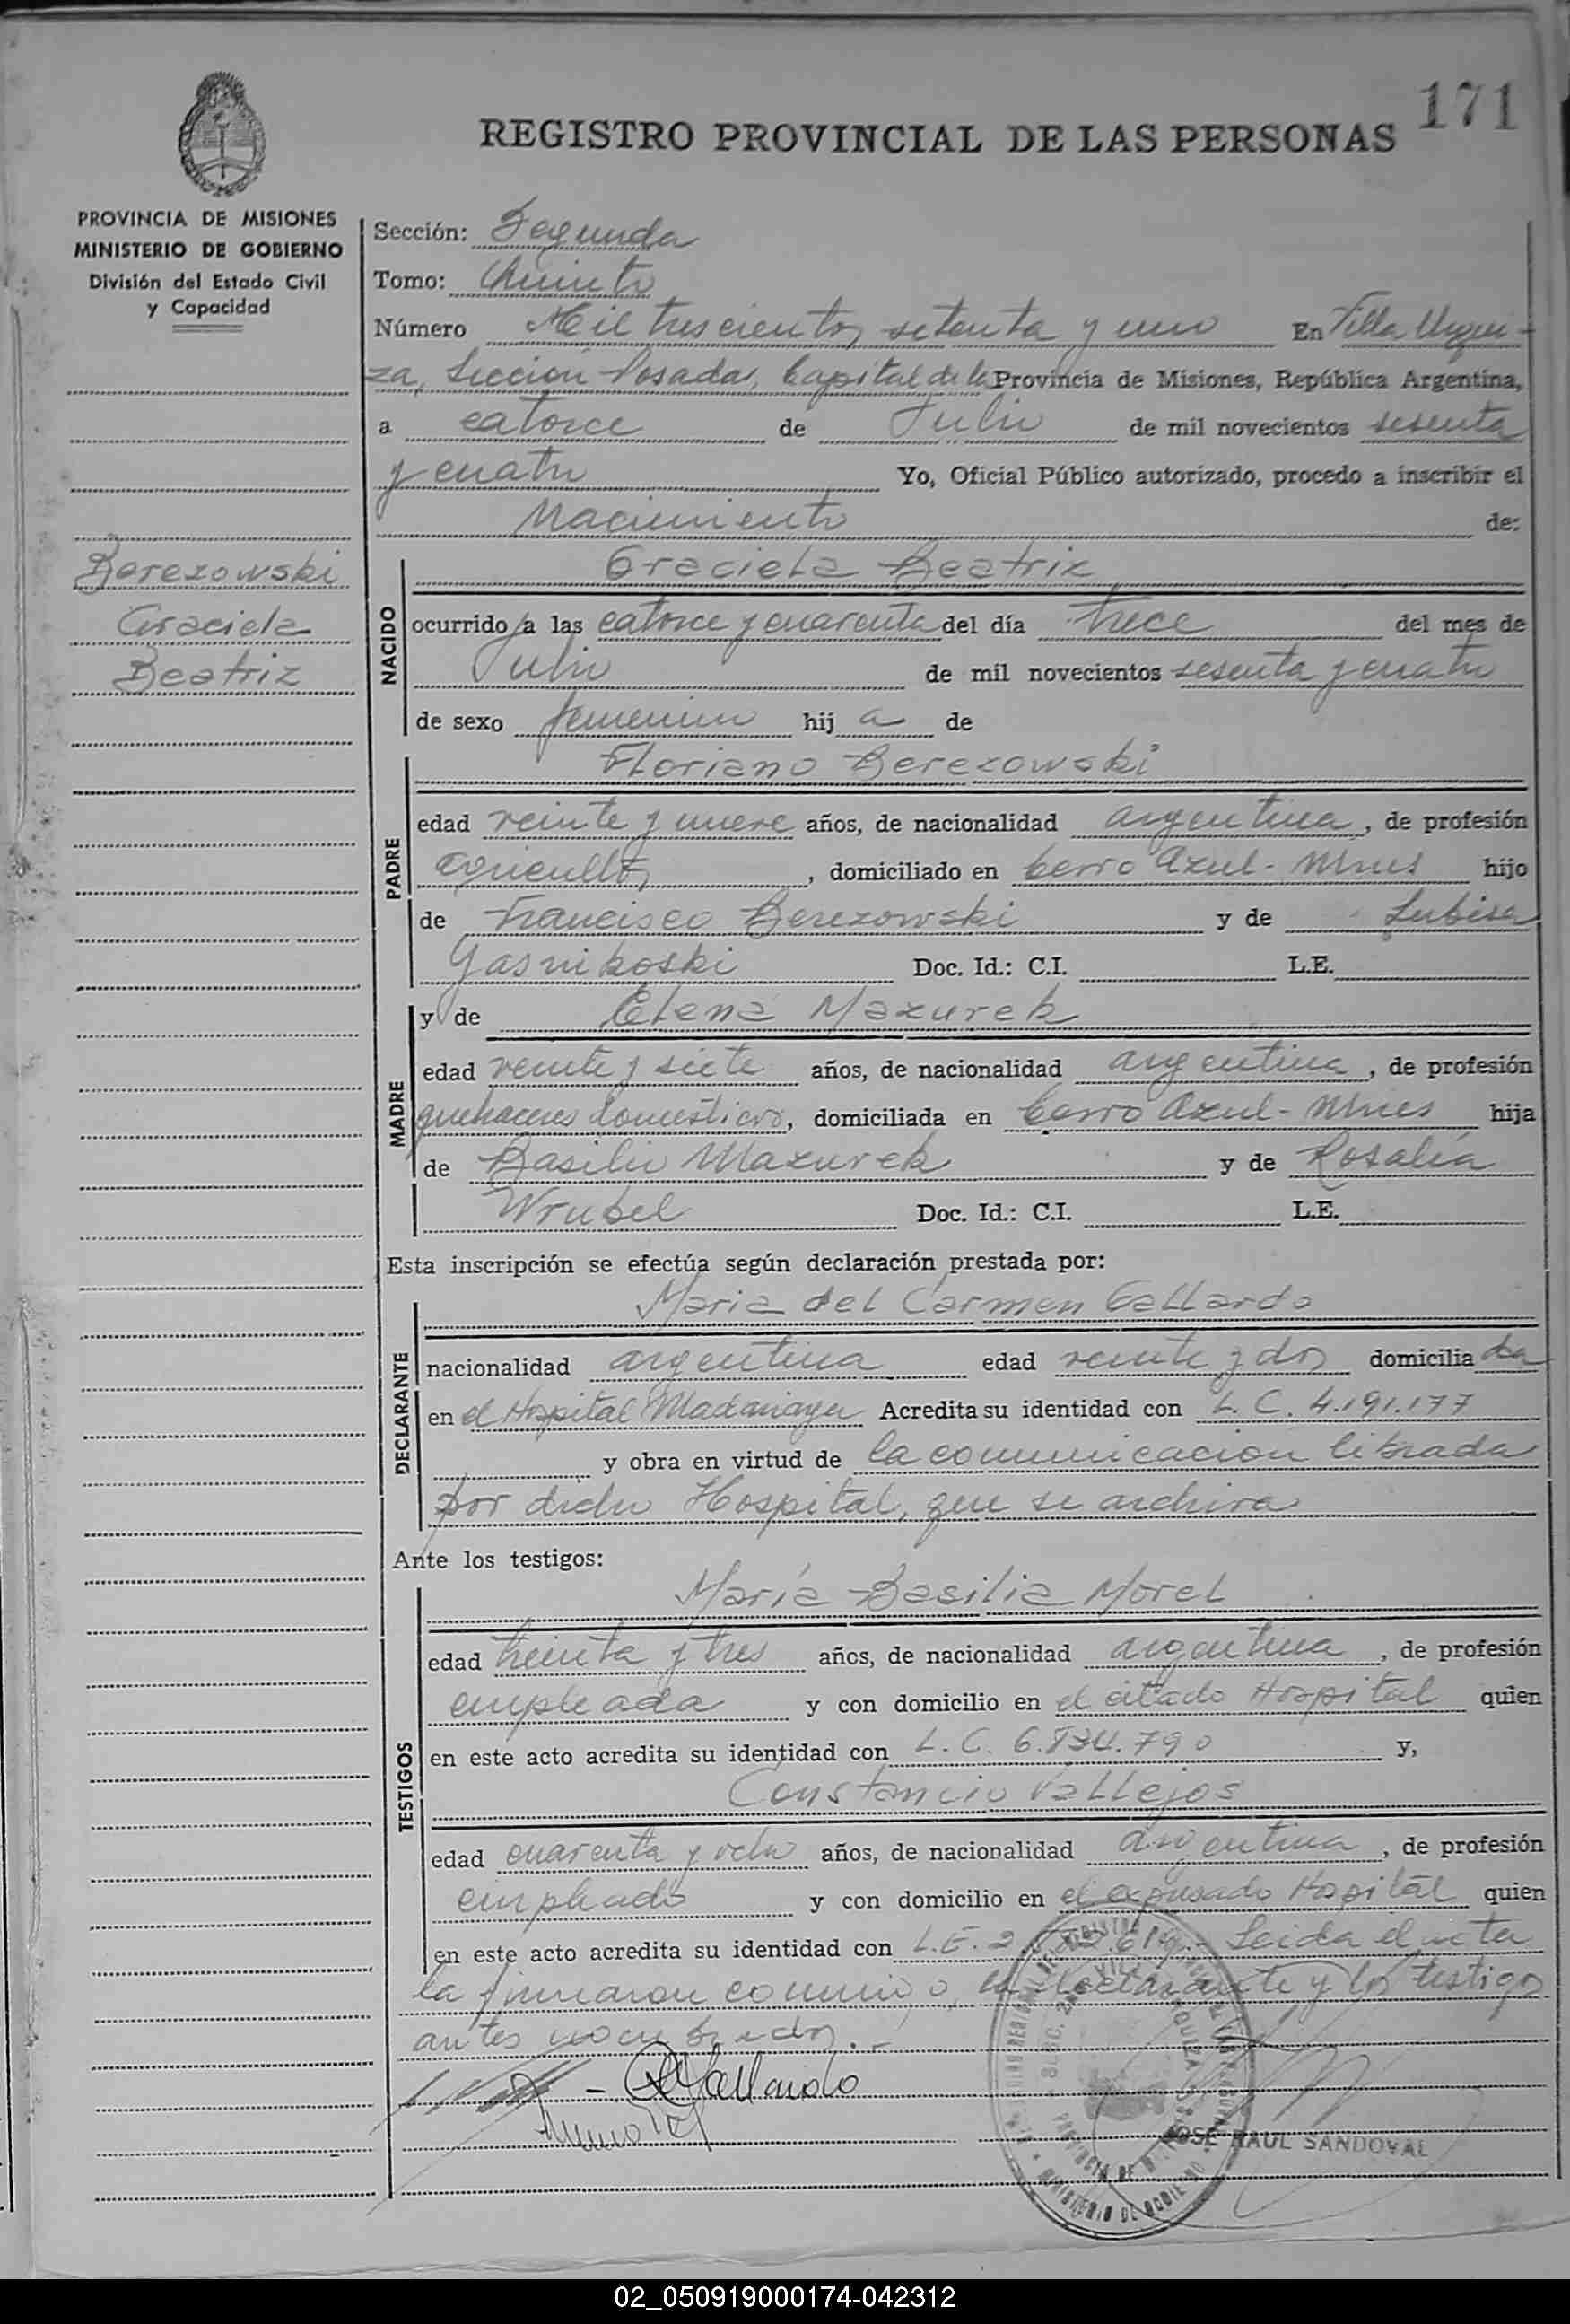 171
REGISTRO PROVINCIAL DE LAS PERSONAS
PROVINCIA DE MISIONES
MINISTERIO DE GOBIERNO
División del Estado Civil
y Capacidad
Berezowski
Graciela
Beatriz
Sección: Segunda
Tomo: Quinto
Número Mil trescientos setenta y uno En Villa Urqui-
za, Sección Posadas, Capital de la Provincia de Misiones, República Argentina,
a catorce de Julio de mil novecientos sesenta
y cuatro Yo, Oficial Público autorizado, procedo a inscribir el
Nacimiento de:
NACIDO
Graciela Beatriz
ocurrido a las catorce y cuarenta del día trece del mes de
Julio de mil novecientos sesenta y cuatro
de sexo femenino hij a de
PADRE
Floriano Berezowski
edad veinte y nueve años, de nacionalidad argentina, de profesión
agricultor, domiciliado en Cerro Azul - Mnes hijo
de Francisco Berezowski y de Lubisa
Yasnikoski Doc. Id.: C.I. L.E.
MADRE
y de Elena Mazurek
edad veinte y siete años, de nacionalidad argentina, de profesión
quehaceres domésticos, domiciliada en Cerro Azul - Mnes hija
de Basilio Mazurek y de Rosalía
Wrubel Doc. Id.: C.I. L.E.
Esta inscripción se efectúa según declaración prestada por:
DECLARANTE
Maria del Carmen Gallardo
nacionalidad argentina edad veinte y dos domicilia da
en el Hospital Madariaga Acredita su identidad con L. C. 4.191.177
y obra en virtud de la comunicacion librada
por dicho Hospital, que se archiva
Ante los testigos:
TESTIGOS
María Basilia Morel
edad treinta y tres años, de nacionalidad argentina, de profesión
empleada y con domicilio en el citado Hospital quien
en este acto acredita su identidad con L. C. 6.834.790 y,
Constancio Vallejos
edad cuarenta y ocho años, de nacionalidad argentina, de profesión
empleado y con domicilio en el expresado Hospital quien
en este acto acredita su identidad con L.E. Leida el acta
la firmaron conmigo, la declarante y los testigos
antes nombrados.-
Gallardo
JOSE RAUL SANDOVAL
02_050919000174-042312